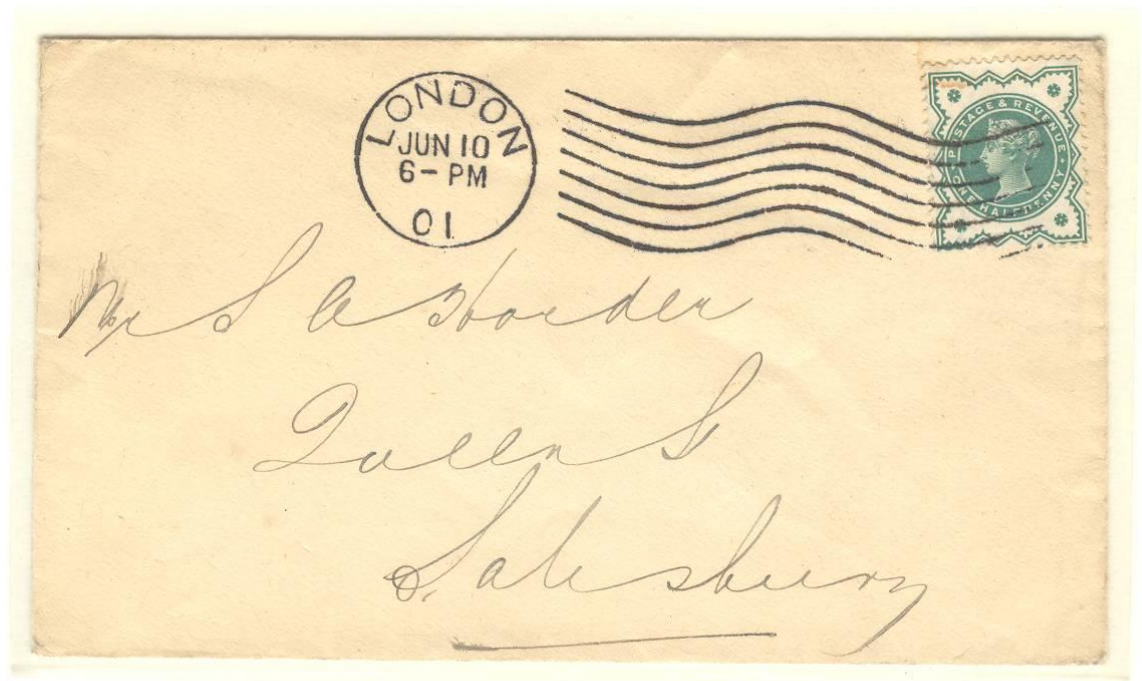 LONDON
JUN 10
6-PM
01
POSTAGE & REVENUE
ONE HALFPENNY
Mr S A Horder
Queen St
Salisbury